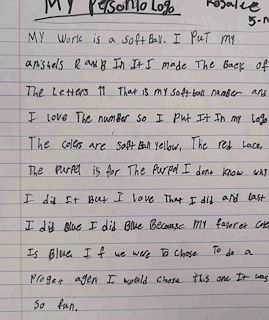 MY Personlo Logo
Rosalee
MY Work is a softball. I PuT my
anishels R and B In It I made The Back of
The Letters 11 That is my softball number and
I love The number so I Put It In my logo
The colers are softball yellow, The red Lace,
The Purpel is for The Purpel I dont know why
I did It But I Love That I did and Last
I did Blue I did Blue Because my favoret coler
Is Blue. I f we were To chose To do a
Proget agen I would chose This one It was
So fun.